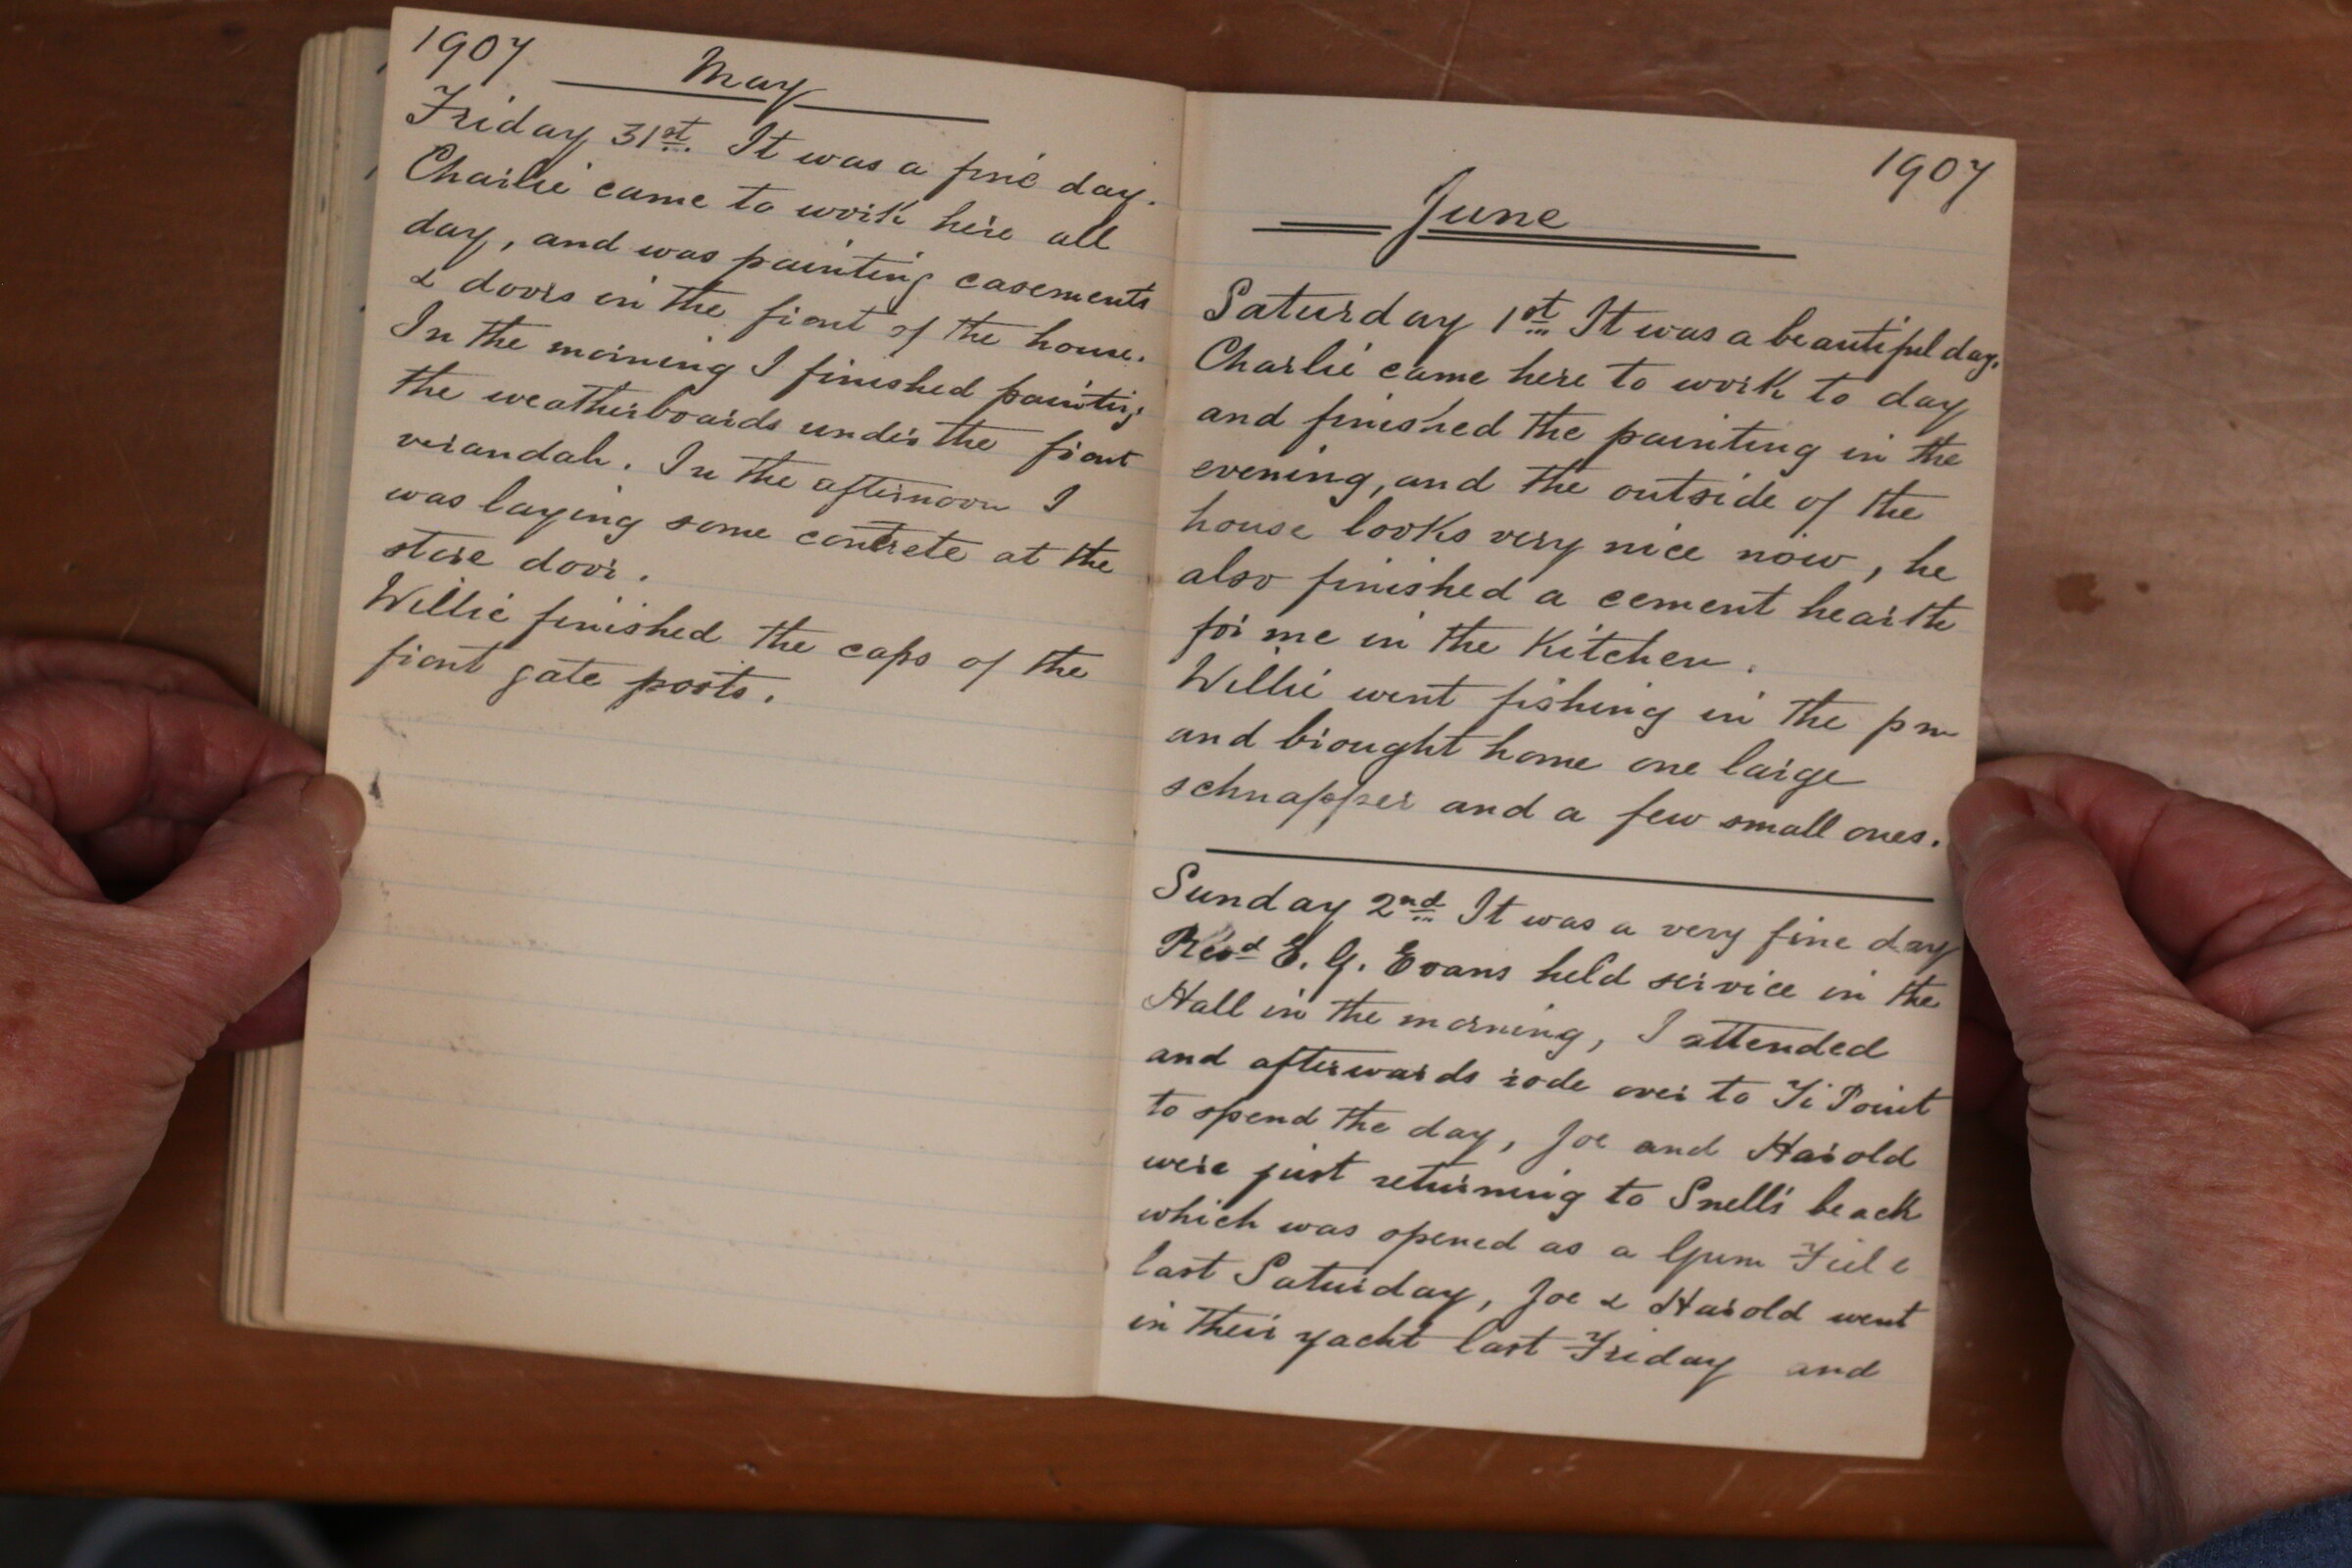 1907
May
Friday 31st. It was a fine day.
Charlie came to work here all
day, and was painting casements
& doors in the front of the house.
In the morning I finished painting
the weatherboards under the front
verandah. In the afternoon I
was laying some concrete at the
store door.
Willie finished the caps of the
front gate posts.
1907
June
Saturday 1st It was a beautiful day.
Charlie came here to work to day
and finished the painting in the
evening, and the outside of the
house looks very nice now, he
also finished a cement hearth
for me in the Kitchen.
Willie went fishing in the pm
and brought home one large
schnapper and a few small ones.
Sunday 2nd It was a very fine day
Revd E. G. Evans held service in the
Hall in the morning, I attended
and afterwards rode over to Ti Point
to spend the day, Joe and Harold
were just returning to Snells beach
which was opened as a Gum Field
last Saturday, Joe & Harold went
in their yacht last Friday and